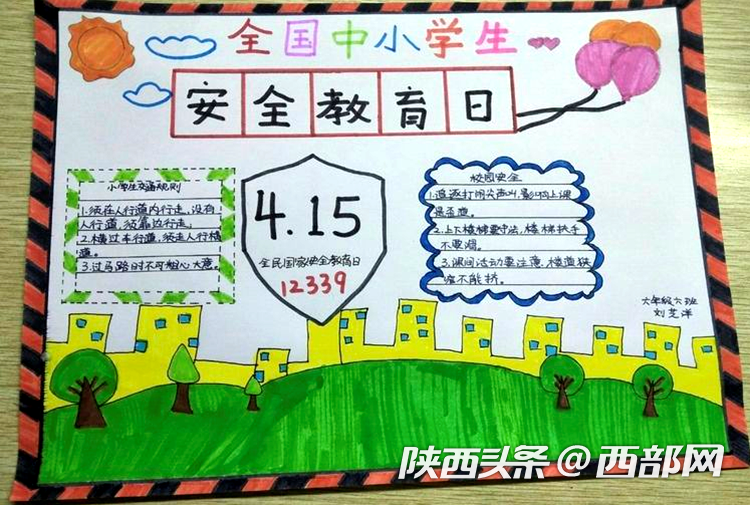 全国中小学生
安全教育日
小学生交通规则
1.须在人行道内行走,没有
人行道,须靠边行走;
2.横过车行道,须走人行横
道。
3.过马路时不可粗心大意。
4.15
全民国家安全教育日
12339
校园安全
1.追逐打闹尖声叫,影响上课
是否难。
2.上下楼梯要守法,楼梯扶手
不要溜。
3.课间活动要注意,楼道狭
窄不能挤。
六年级六班
刘芝洋
陕西头条@西部网